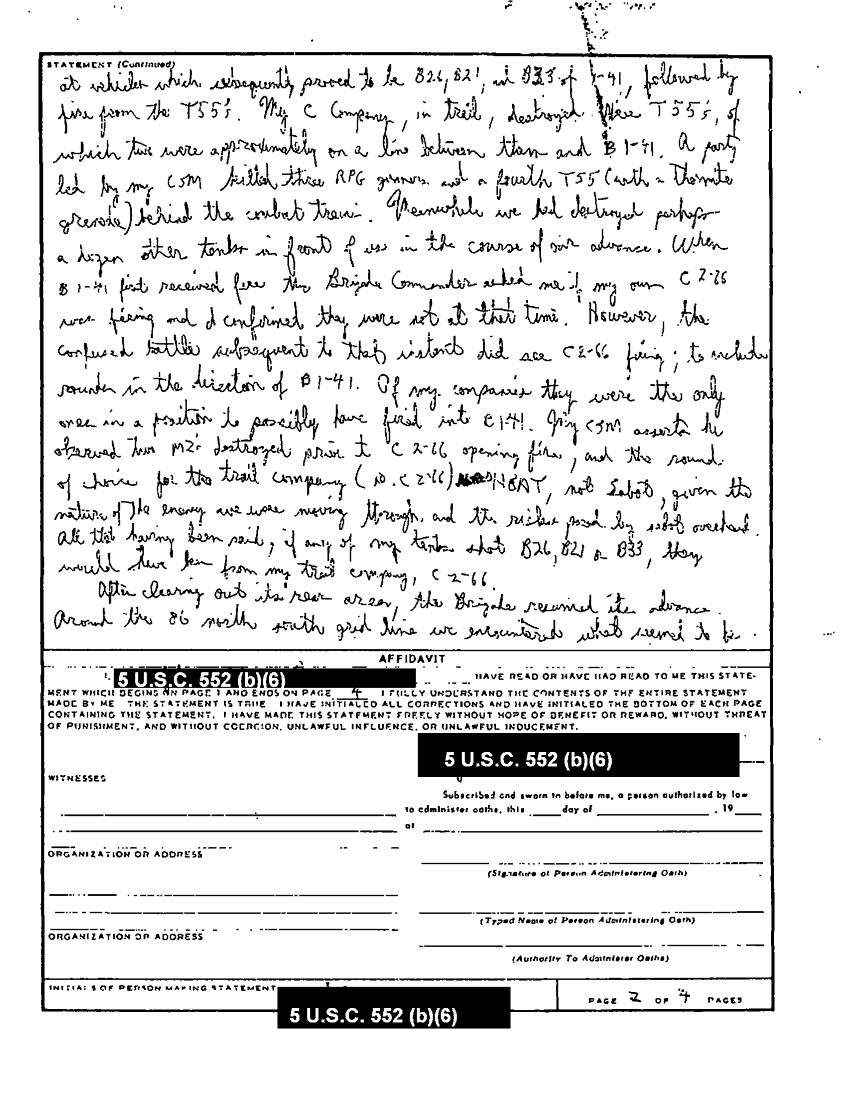 STATEMENT (Continued)
at vehicles which subsequently proved to be B26, B21, and B33 of 1-41, followed by
fire from the T55's. My C Company, in trail, destroyed three T55's, of
which two were approximately on a line between them and B 1-41. A party
led by my CSM killed three RPG gunners and a fourth T55 (with a Thermite
grenade) behind the combat trains. Meanwhile we had destroyed perhaps
a dozen other tanks in front of us in the course of our advance. When
B 1-41 first received fire the Brigade Commander asked me if my own C 2-66
was firing and I confirmed they were not at that time. However, the
confused battle subsequent to that instant did see C 2-66 firing; to include
rounds in the direction of B 1-41. Of my companies they were the only
ones in a position to possibly have fired into C 1-41. My CSM asserts he
observed two M2's destroyed prior to C 2-66 opening fire, and the round
of choice for the trail company (ie. C 2-66) HEAT, not Sabot, given the
nature of the enemy we were moving through, and the risks posed by sabot overhead.
All that having been said, if any of my tanks shot B26, B21 or B33, they
would have been from my trail company, C 2-66.
After clearing out its rear area, the Brigade resumed its advance.
Around the 86 north south grid line we encountered what seemed to be
AFFIDAVIT
I, 5 U.S.C. 552 (b)(6) HAVE READ OR HAVE HAD READ TO ME THIS STATE-
MENT WHICH BEGINS ON PAGE 1 AND ENDS ON PAGE 4 I FULLY UNDERSTAND THE CONTENTS OF THE ENTIRE STATEMENT
MADE BY ME THE STATEMENT IS TRUE I HAVE INITIALED ALL CORRECTIONS AND HAVE INITIALED THE BOTTOM OF EACH PAGE
CONTAINING THE STATEMENT. I HAVE MADE THIS STATEMENT FREELY WITHOUT HOPE OF BENEFIT OR REWARD, WITHOUT THREAT
OF PUNISHMENT, AND WITHOUT COERCION, UNLAWFUL INFLUENCE, OR UNLAWFUL INDUCEMENT.
5 U.S.C. 552 (b)(6)
WITNESSES
Subscribed and sworn to before me, a person authorized by law
to administer oaths, this day of , 19
at
ORGANIZATION OR ADDRESS
(Signature of Person Administering Oath)
(Typed Name of Person Administering Oath)
ORGANIZATION OR ADDRESS
(Authority To Administer Oaths)
INITIALS OF PERSON MAKING STATEMENT
5 U.S.C. 552 (b)(6)
PAGE 2 OF 4 PAGES